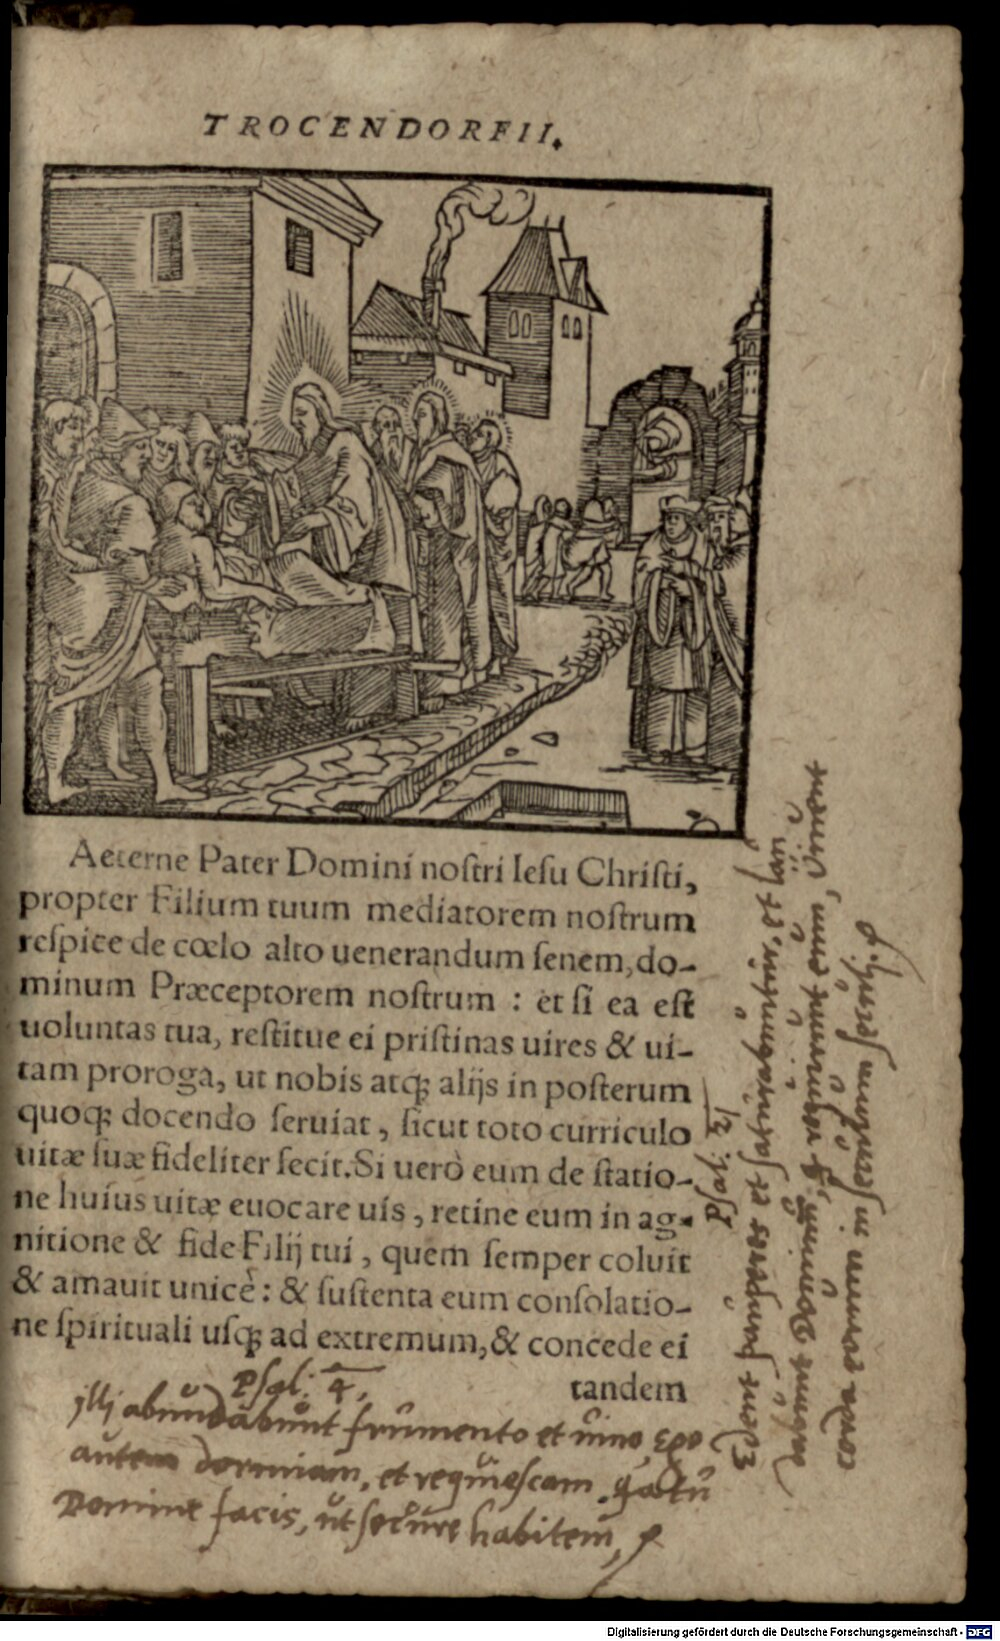 TROCENDORFII.
Aeterne Pater Domini noſtri Ieſu Chriſti,
propter Filium tuum mediatorem noſtrum
reſpice de cœlo alto uenerandum ſenem, do-
minum Præceptorem noſtrum : et ſi ea eſt
uoluntas tua, reſtitue ei priſtinas uires & ui-
tam proroga, ut nobis atqꝫ alijs in poſterum
quoqꝫ docendo ſeruiat, ſicut toto curriculo
uitæ ſuæ fideliter fecit. Si uerò eum de ſtatio-
ne huius uitæ euocare uis, retine eum in ag-
nitione & fide Filij tui, quem ſemper coluit
& amauit unicè: & ſuſtenta eum conſolatio-
ne ſpirituali uſqꝫ ad extremum, & concede ei
tandem
Pſal: 4.
illi abundabunt frumento et uino, Ego
autem dormiam, et requieſcam. Qꝛ tu
Domine facis, ut ſecure habitem,
Pſal: 22
Edent pauperes et ſaturabuntur, et lau
dabunt Dominum, qui requirunt eum, Viuent
corda eorum in
Digitalisierung gefördert durch die Deutsche Forschungsgemeinschaft - DFG